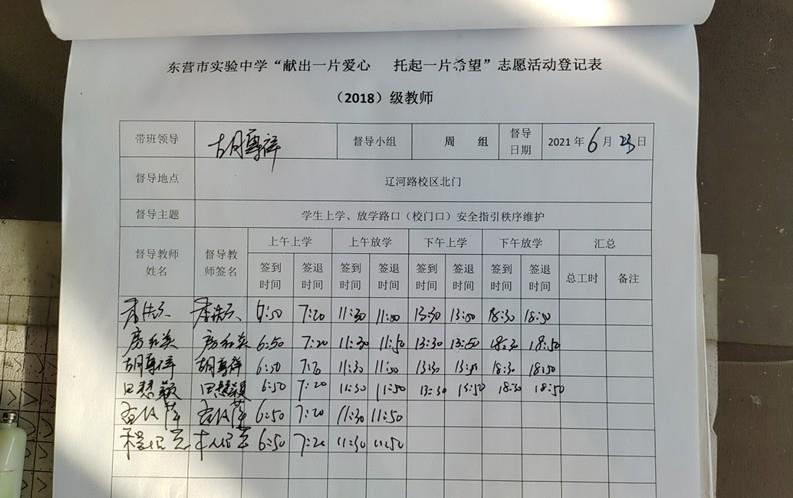 东营市实验中学“献出一片爱心 托起一片希望”志愿活动登记表
（2018）级教师
带班领导 胡尊祥 督导小组 周 组 督导日期 2021年6月23日
督导地点 辽河路校区北门
督导主题 学生上学、放学路口（校门口）安全指引秩序维护
督导教师姓名 督导教师签名 上午上学 上午放学 下午上学 下午放学 汇总
签到时间 签退时间 签到时间 签退时间 签到时间 签退时间 签到时间 签退时间 总工时 备注
6:50 7:20 11:30 13:30 18:30 18:50
6:50 7:20 11:30 11:50 13:30 13:50 18:30 18:50
胡尊祥 胡尊祥 6:50 11:30 13:30 18:30 18:50
田慧颖 田慧颖 6:50 7:20 11:30 11:50 13:30 13:50 18:30 18:50
6:50 7:20 11:30 11:50
6:50 7:20 11:30 11:50